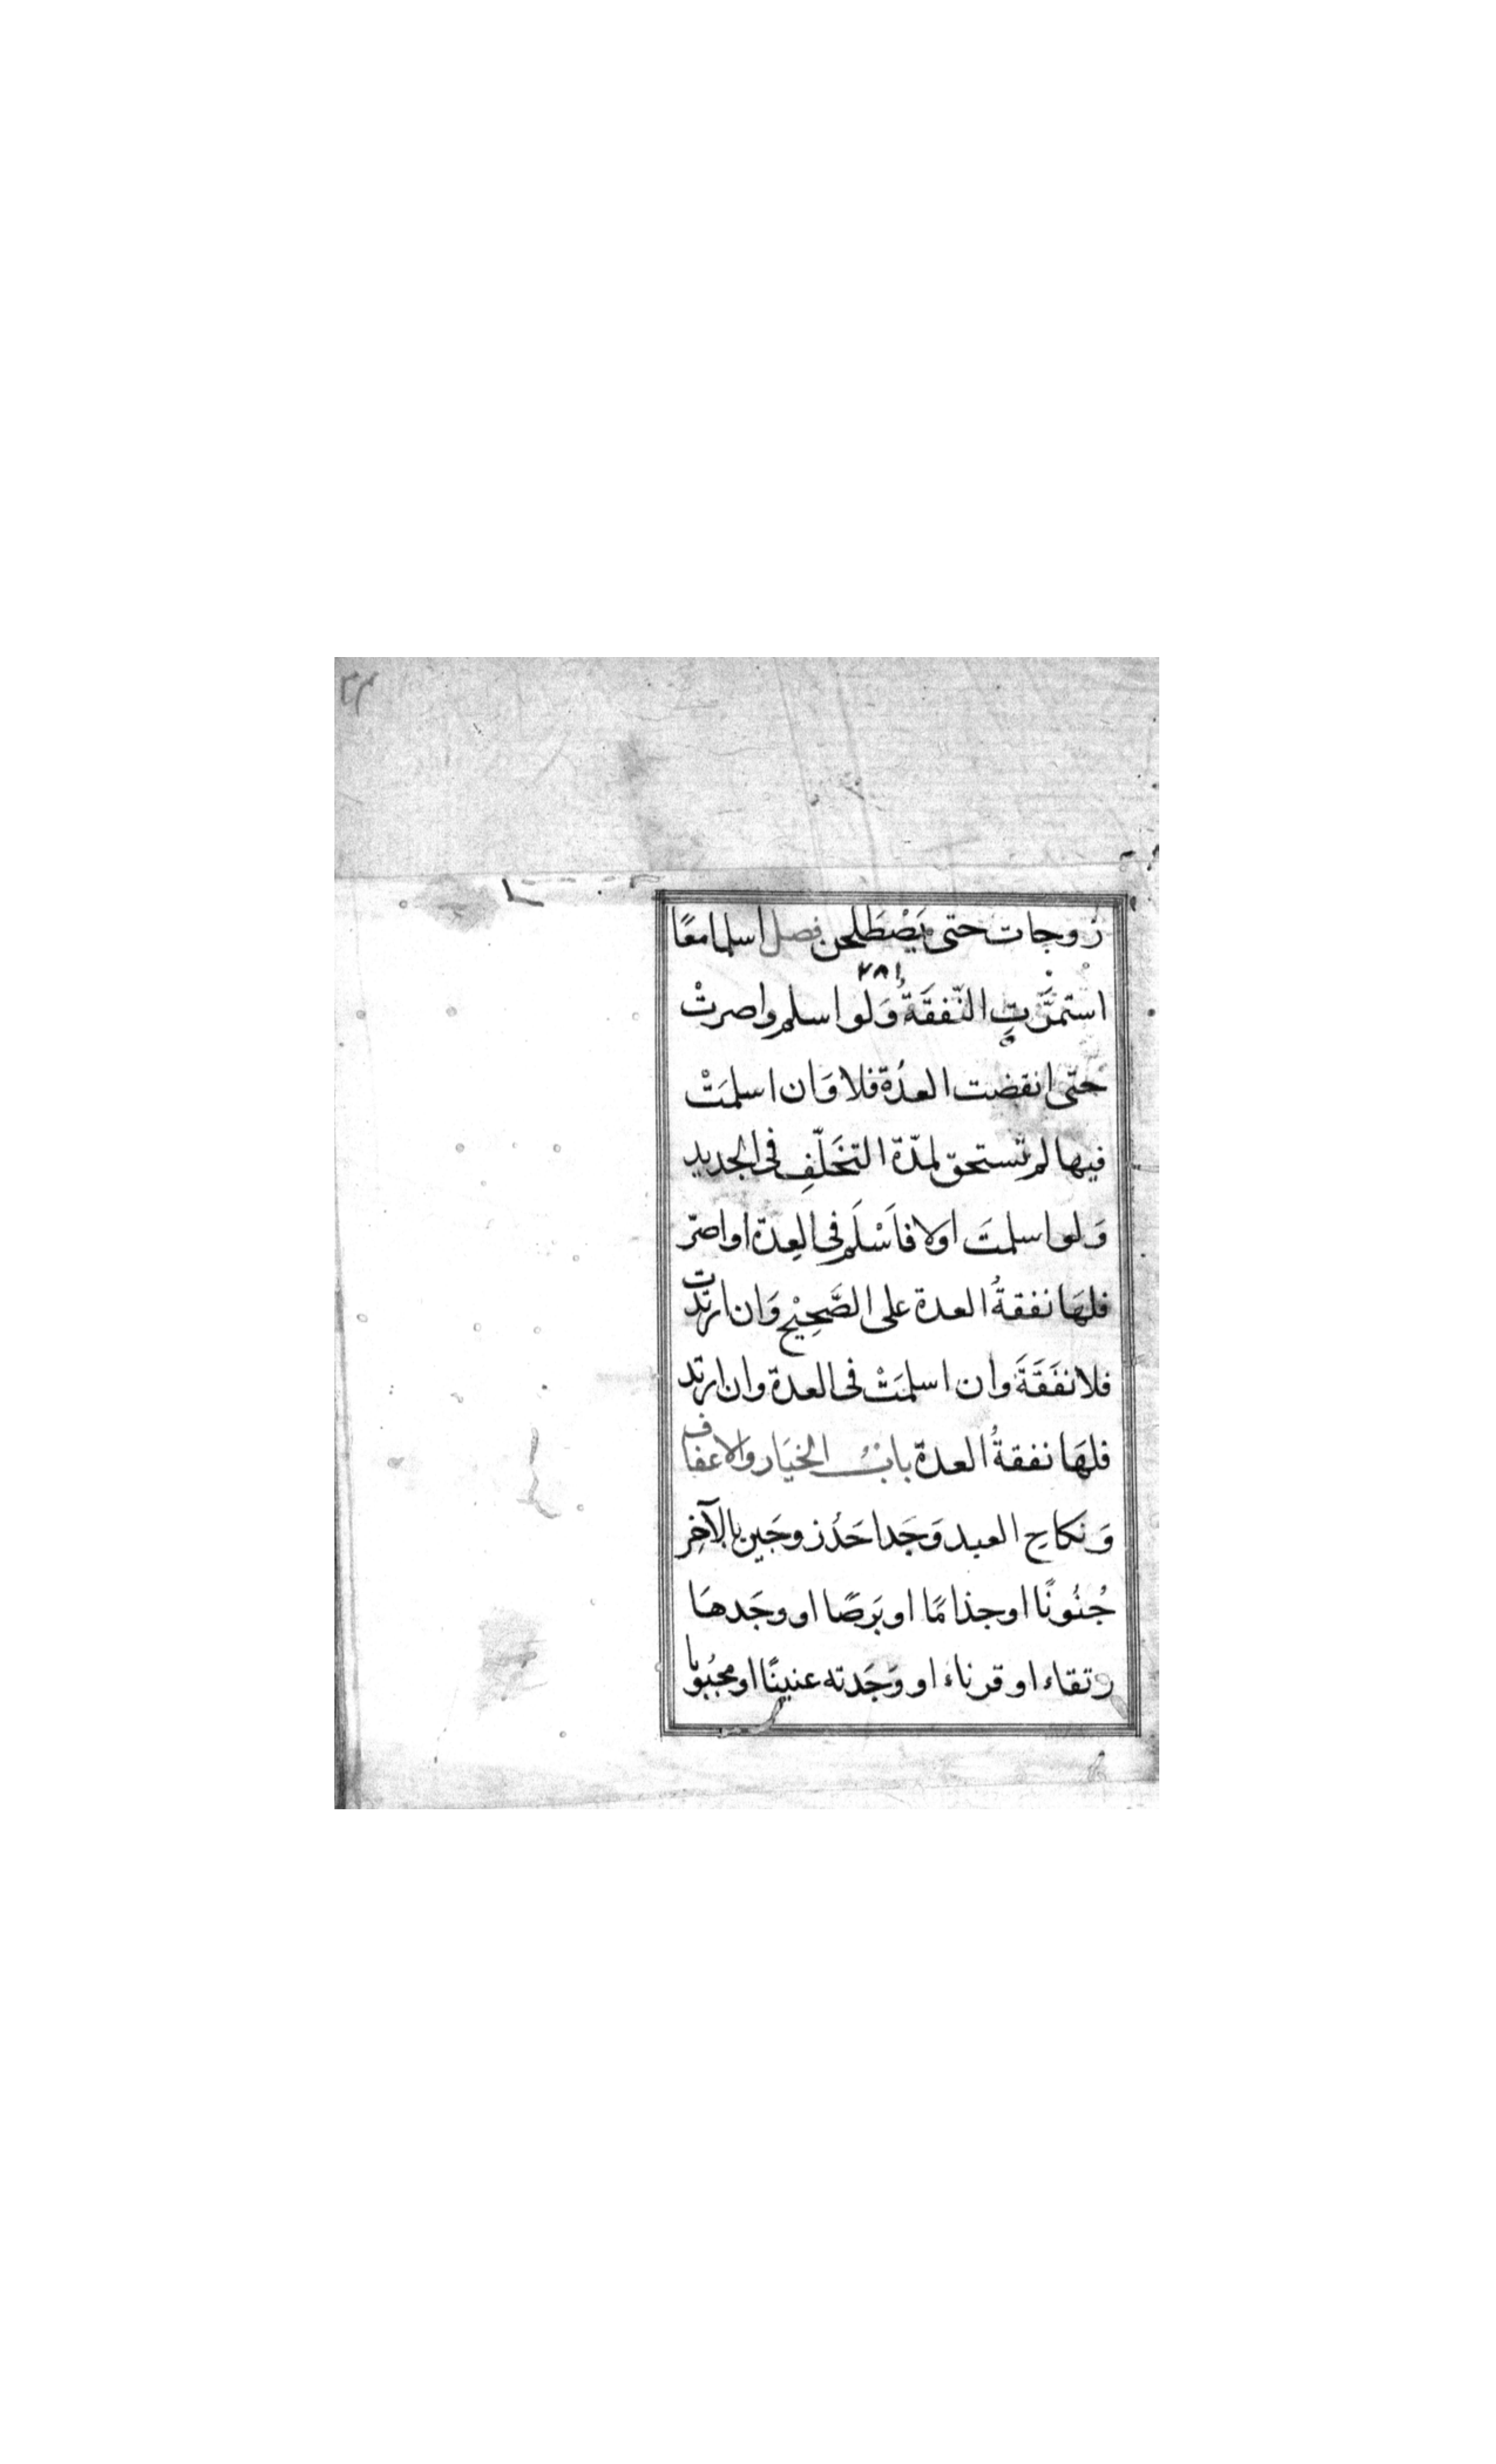 زوجات حتى يَصْطَلحن فصل اسلما معًا
استمرَّتِ النّفقَةُ وَلو اسلم واصرتْ
حتّى انقضت العدُة فلا وَان اسلمَتْ
فيها لم تستحق لمدّة التخَلّفِ فى الجديد
وَلو اسلمتَ اولا فاَسْلَم فى العِدة او اصرّ
فلهَا نفقةُ العدة على الصَّحِيْح وَان ارتدت
فلا نفَقَةَ وان اسلمَتْ فى العدة وان ارتد
فلهَا نفقةُ العدّة بابُ الخيَار والاعفاف
وَنكاح العبد وَجَد احَدُ زوجَين بالآخِر
جُنُونًا او جذامًا او بَرصًا او وجَدهَا
رتقاء او قرناء او وَجَدته عنينًا او مجبُوبا